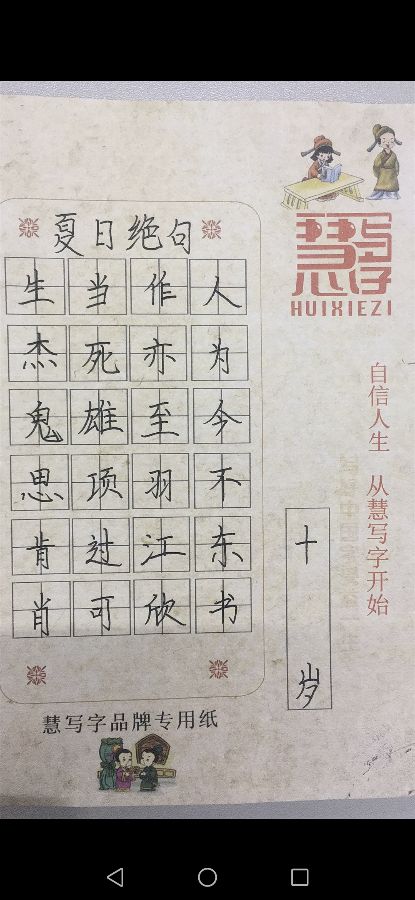 夏日绝句
生当作人
杰死亦为
鬼雄至今
思项羽不
肯过江东
肖可欣书
慧写字品牌专用纸
慧写字
HUIXIEZI
自信人生 从慧写字开始
十岁